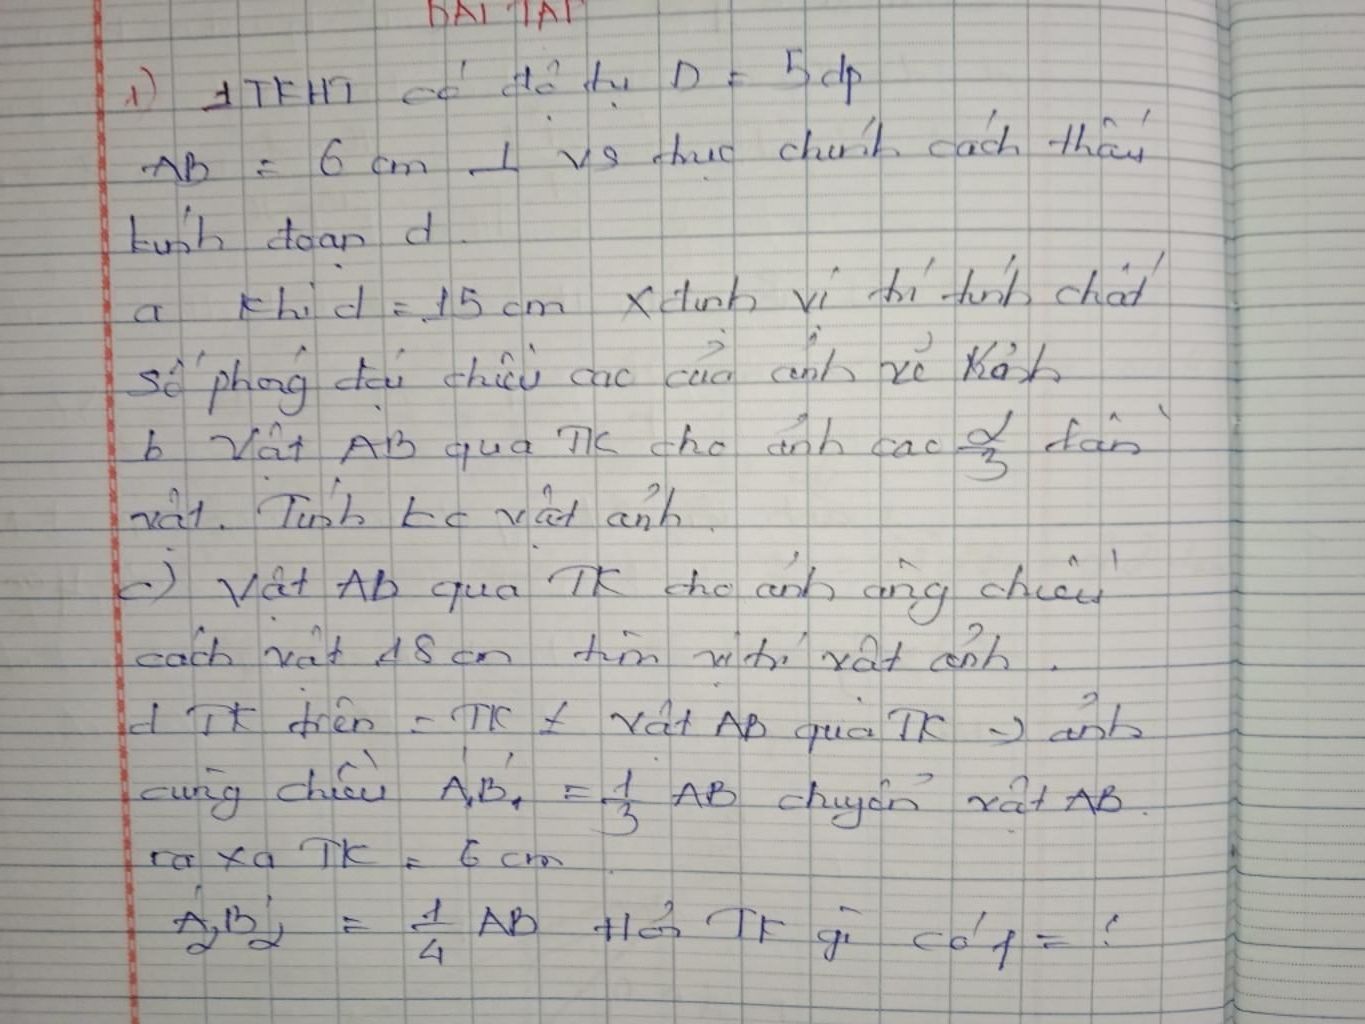 BÀI TẬP
1) 1 TKHT có độ tụ D = 5 dp
AB = 6 cm ⊥ vs trục chính cách thấu
kính đoạn d.
a Khi d = 15 cm xđịnh vị trí tính chất
số phóng đại chiều cao của ảnh vẽ hình
b Vật AB qua TK cho ảnh cao 2/3 lần
vật. Tính k c vật ảnh.
c) Vật AB qua TK cho ảnh cùng chiều
cách vật 18 cm tìm vị trí vật ảnh.
d TK trên = TK ≠ vật AB qua TK → ảnh
cùng chiều A'₁B'₁ = 1/3 AB chuyển vật AB.
ra xa TK = 6 cm
A'₂B'₂ = 1/4 AB Hỏi TK gì có f = ?